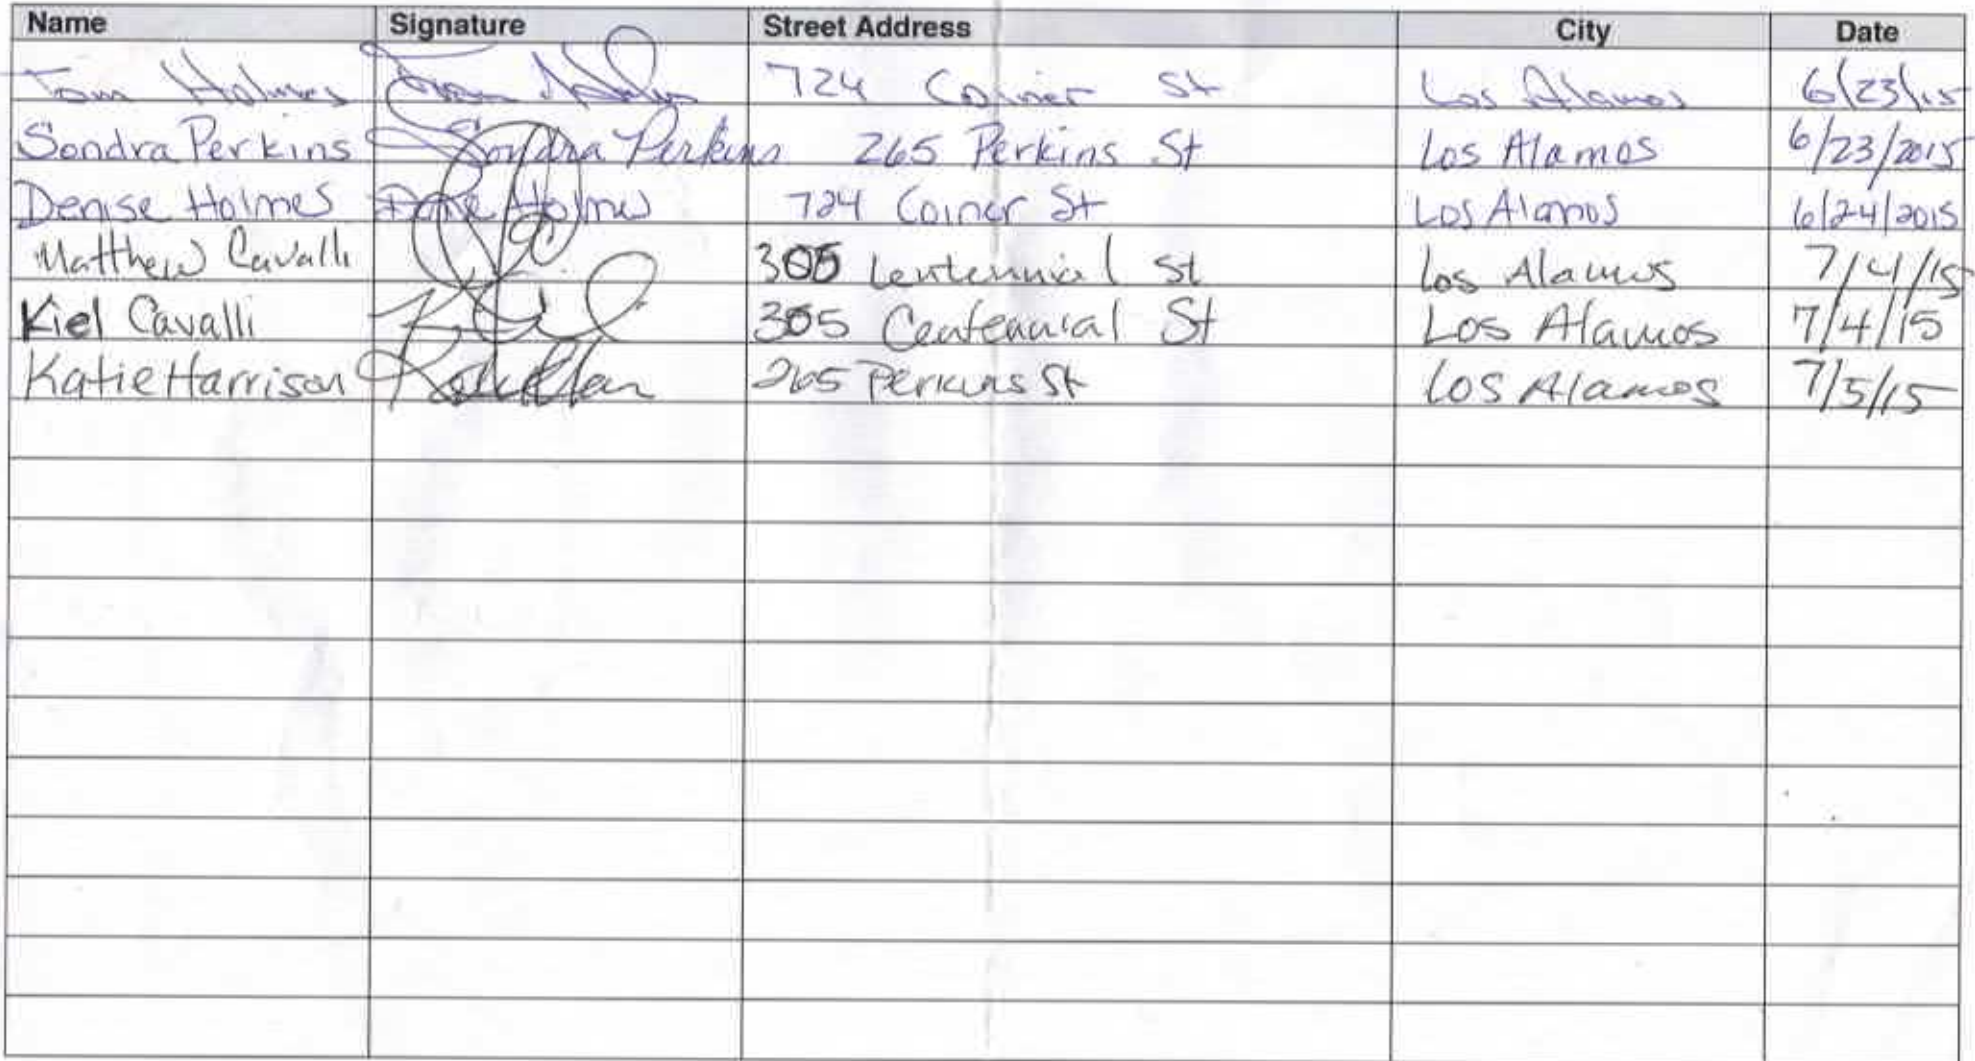 Name Signature Street Address City Date
Tom Holmes Tom Holmes 724 Coiner St Los Alamos 6/23/15
Sondra Perkins Sondra Perkins 265 Perkins St Los Alamos 6/23/2015
Denise Holmes Holmes 724 Coiner St Los Alamos 6/24/2015
Matthew Cavalli 305 Centennial St Los Alamos 7/4/15
Kiel Cavalli 305 Centennial St Los Alamos 7/4/15
Katie Harrison 265 Perkins St Los Alamos 7/5/15